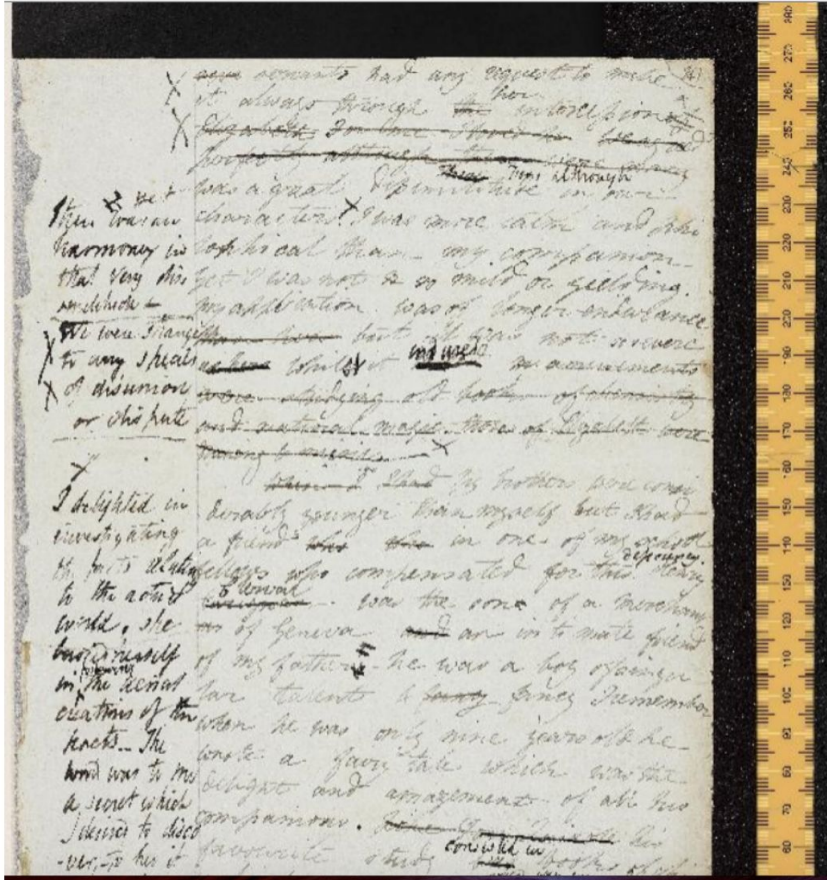 servants had any request to make
it always through her intercession
Elizabeth
perfectly although there were
was a great dissimilitude in our
this although
characters. X I was more calm and philo
sophical than my companion
yet I was not so mild or yielding.
My application was of longer endurance
but it was not so severe
whilst it endured. amusements
were studying old books of chemistry
and natural magic those of Elizabeth were
X
I had My brothers were consi
derably younger than myself but I had
a friend in one of my school
fellows who compensated for this deficiency.
Henry
Clerval was the son of a merchant
of Geneva and an intimate friend
of my father he was a boy of singu
lar talents & fancy I remember
when he was only nine years old he
wrote a fairy tale which was the
delight and amazement of all his
companions. his
favourite study consisted in books of chi
X
X
there was an
harmony in
that very dis
similitude
We were strangers
X to any species
X of disunion
or dispute
X
I delighted in
investigating
the facts relative
to the actual
world, she
busied herself
in following the aerial
creations of the
poets. The
world was to me
a secret which
I desired to disco
-ver, to her it
280
270
260
250
240
230
220
210
200
190
180
170
160
150
140
130
120
110
100
90
80
70
60